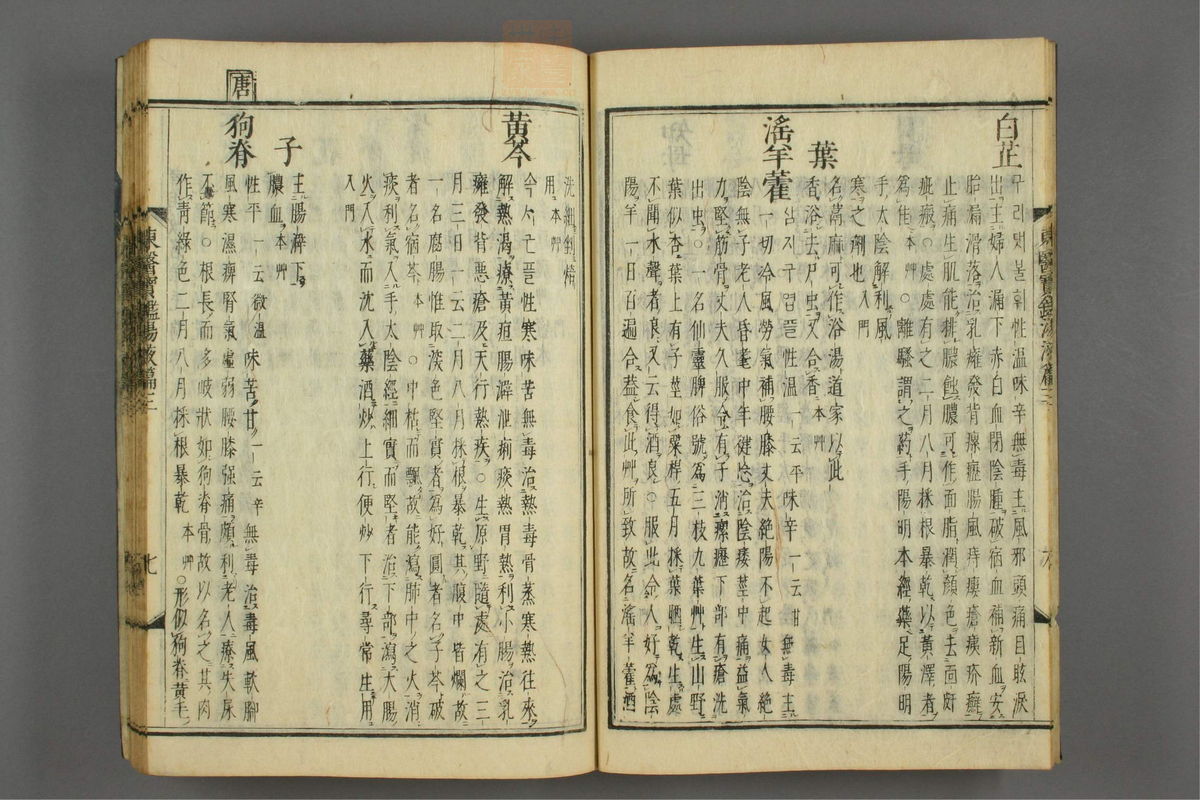 白芷
구리댓불휘性溫味辛無毒主風邪頭痛目眩淚
出主婦人漏下赤白血閉陰腫破宿血補新血安
胎漏滑落治乳癰發背瘰癧腸風痔瘻瘡痍疥癬
止痛生肌能排膿蝕膿可作面脂潤顔色去面䵟
疵瘢○處處有之二月八月採根暴乾以黃澤者
爲佳本艸○離騷謂之葯手陽明本經藥足陽明
手太陰解利風
寒之劑也入門
葉
名蒿麻可作浴湯道家以此
香浴去尸虫又合香本艸
淫羊藿
삼지구엽플性溫一云平味辛一云甘無毒主
一切冷風勞氣補腰膝丈夫絶陽不起女人絶
陰無子老人昏耄中年健忘治陰痿莖中痛益氣
力堅筋骨丈夫久服令有子消瘰癧下部有瘡洗
出虫○一名仙靈脾俗號爲三枝九葉艸生山野
葉似杏葉上有子莖如粟稈五月採葉晒乾生處
不聞水聲者良又云得酒良○服此令人好爲陰
陽羊一日百遍合葢食此艸所致故名淫羊藿酒
東醫寶鑑湯液篇三
洗細剉焙
用本艸
黃芩
숏서근플性寒味苦無毒治熱毒骨蒸寒熱往來
解熱渴療黃疸腸澼泄痢痰熱胃熱利小腸治乳
癰發背惡瘡及天行熱疾○生原野隨處有之三
月三日一云二月八月採根暴乾其腹中皆爛故
一名腐腸惟取深色堅實者爲好圓者名子芩破
者名宿芩本艸○中枯而飄故能瀉肺中之火消
痰利氣入手太陰經細實而堅者治下部瀉大腸
火入水而沈入藥酒炒上行便炒下行尋常生用
入門
子
主腸澼下
膿血本艸
唐
狗脊
性平一云微溫味苦甘一云辛無毒治毒風軟脚
風寒濕痺腎氣虛弱腰膝强痛頗利老人療失尿
不節○根長而多岐狀如狗脊骨故以名之其肉
作靑綠色二月八月採根暴乾本艸○形似狗脊黃毛
東醫寶鑑湯液篇三
七